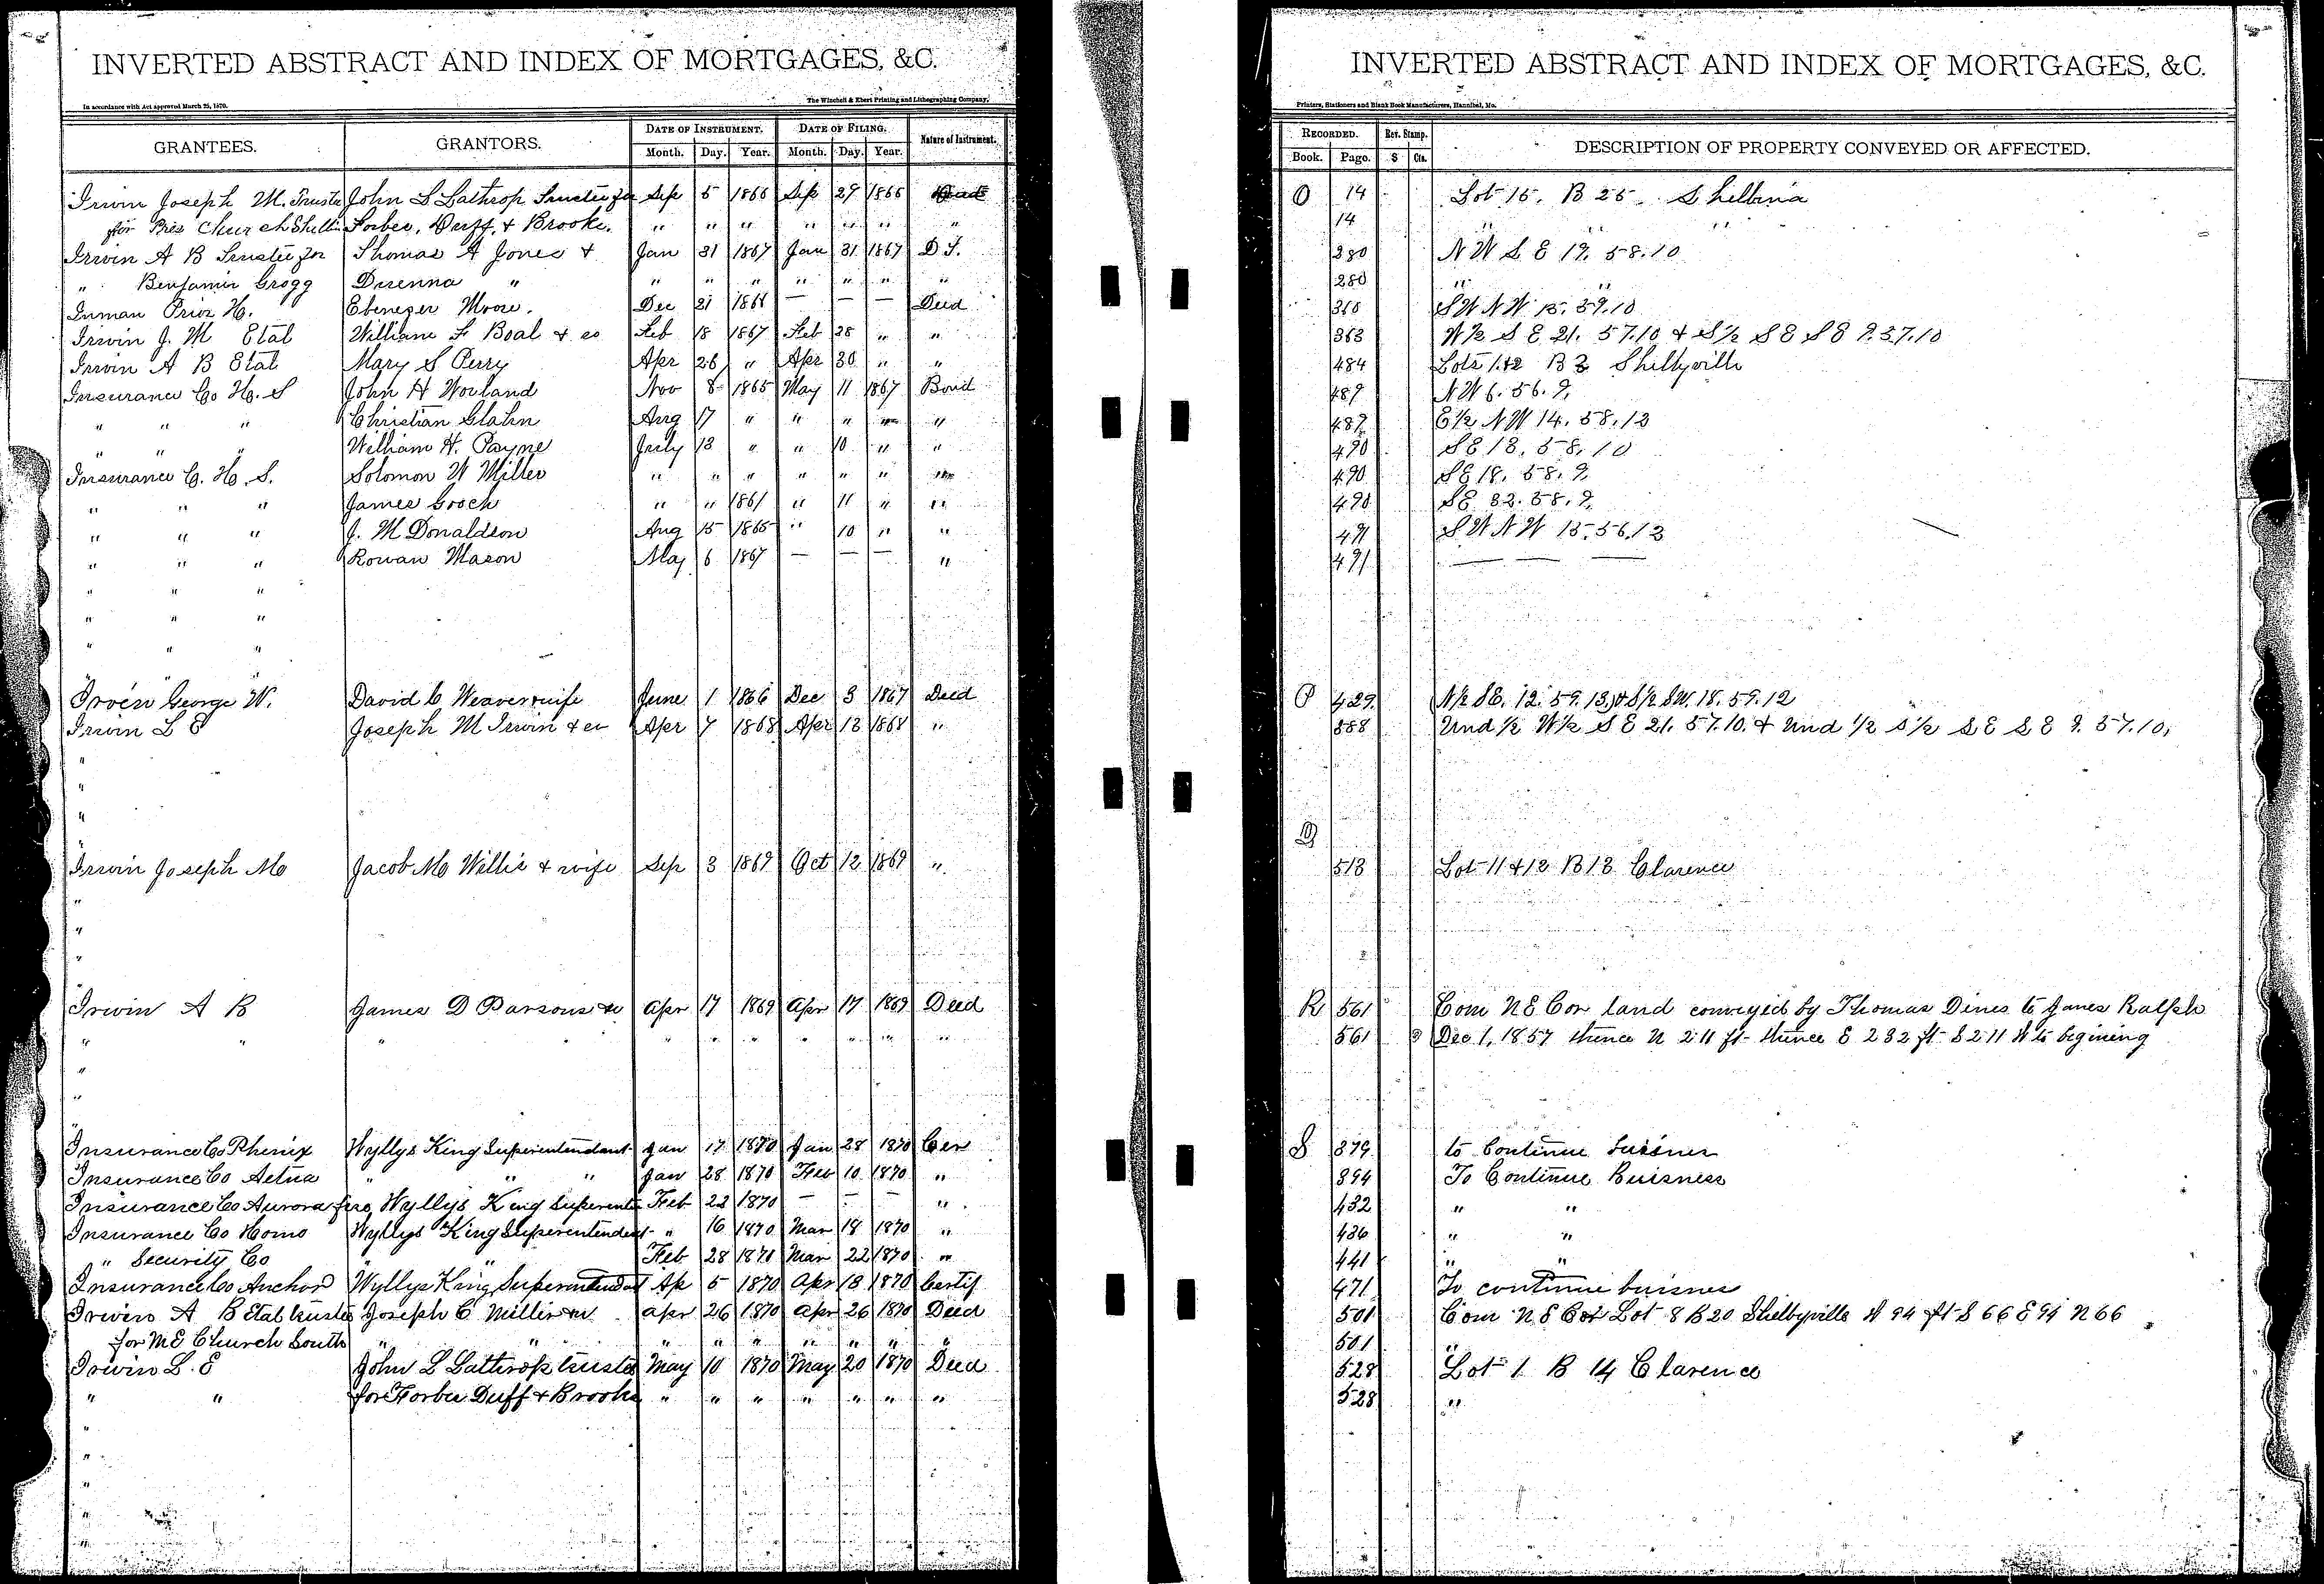 INVERTED ABSTRACT AND INDEX OF MORTGAGES, &C.
In accordance with Act approved March 25, 1870.
The Winchell & Ebert Printing and Lithographing Company,
GRANTEES. GRANTORS. DATE OF INSTRUMENT. DATE OF FILING. Nature of Instrument.
Month. Day. Year. Month. Day. Year.
Irwin Joseph M. Truste John L Lathrop Trustee for Sep 5 1866 Sep 29 1866
for Pres Church Shelbi Forbes, Duff, & Brooke. " " " " " " "
Irwin A B Trustee for Thomas A Jones & Jan 31 1867 Jan 31 1867 D T.
" Benjamin Grogg Darenna " " " " " " " "
Inman Prior H. Ebenezer Moore. Dec 21 1866 — — — Deed
Irwin J. M Etal William F. Boal & co Feb 18 1867 Feb 28 " "
Irwin A B Etal Mary S Perry Apr 26 " Apr 30 " "
Insurance Co H. S John H Worland Nov 8 1865 May 11 1867 Bond
" " " Christian Glahn Aug 17 " " " "
" " " William H. Payne July 13 " " 10 " "
Insurance C. H. S. Solomon W Miller " " " " " " "
" " " James Gooch " " 1861 " 11 " "
" " " J. M Donaldson Aug 15 1865 " 10 " "
" " " Rowan Mason May 6 1867 — — — "
" " "
" " "
" " "
Irven George W. David C Weaver wife June 1 1866 Dec 3 1867 Deed
Irwin L E Joseph M Irwin & co Apr 7 1868 Apr 13 1868 "
"
"
"
Irwin Joseph M Jacob M Willis & wife Sep 3 1869 Oct 12 1869 "
"
"
"
Irwin A B James D Parsons & Apr 17 1869 Apr 17 1869 Deed
" " " " " " " " " "
"
"
Insurance Co Phenix Wyllys King Superintendant Jan 17 1870 Jan 28 1870 Cer
Insurance Co Aetna " " Jan 28 1870 Feb 10 1870 "
Insurance Co Aurora fire Wyllys King Superente Feb 22 1870 — — — "
Insurance Co Home Wyllys King Superentendent " 16 1870 Mar 18 1870 "
" Security Co " " Feb 28 1870 Mar 22 1870 "
Insurance Co Anchor Wyllys King Superintendat Ap 5 1870 Apr 18 1870 Certif
Irwin A B Etal truste Joseph C Millison Apr 26 1870 Apr 26 1870 Deed
for M E Church South " " " " " " " " "
Irwin L. E John L Lathrop truste May 10 1870 May 20 1870 Deed
" " for Forbes Duff & Brooke " " " " " " "
"
"
"
"
"
INVERTED ABSTRACT AND INDEX OF MORTGAGES, &C.
Printers, Stationers and Blank Book Manufacturers, Hannibal, Mo.
RECORDED. Rev. Stamp. DESCRIPTION OF PROPERTY CONVEYED OR AFFECTED.
Book. Page. $ Cts.
O 14 Lot 15. B 25 Shelbina
14 " "
280 N W S E 19. 58.10
280 "
318 S W N W 15. 59.10
363 W ½ S E 21. 57.10 & S ½ S E S E 9. 57.10
484 Lots 1 & 2 B 3 Shelbyville
489 N W 6. 56. 9,
489 E ½ N W 14. 58. 12
490 S E 13. 58. 10
490 S E 18. 58. 9,
490 S E 32. 58. 9,
491 S W N W 15. 56. 12
491 —
P 429 N ½ S E. 12. 59. 13, & S ½ S W. 18. 59. 12
588 Und ½ W ½ S E 21. 57. 10. & Und ½ S ½ S E S E 9. 57. 10,
Q
513 Lot 11 & 12 B 13 Clarence
R 561 Com N E Cor land conveyed by Thomas Dines to James Ralph
561 Dec 1, 1857 thence N 211 ft thence E 232 ft S 211 W to begining
S 379 to Continue buisnes
394 To Continue Buisness
432 " "
436 " "
441 " "
471 To continue buisnes
501 Com N E Cor Lot 8 B 20 Shelbyville W 94 ft S 66 E 94 N 66
501 "
528 Lot 1 B 14 Clarence
528 "